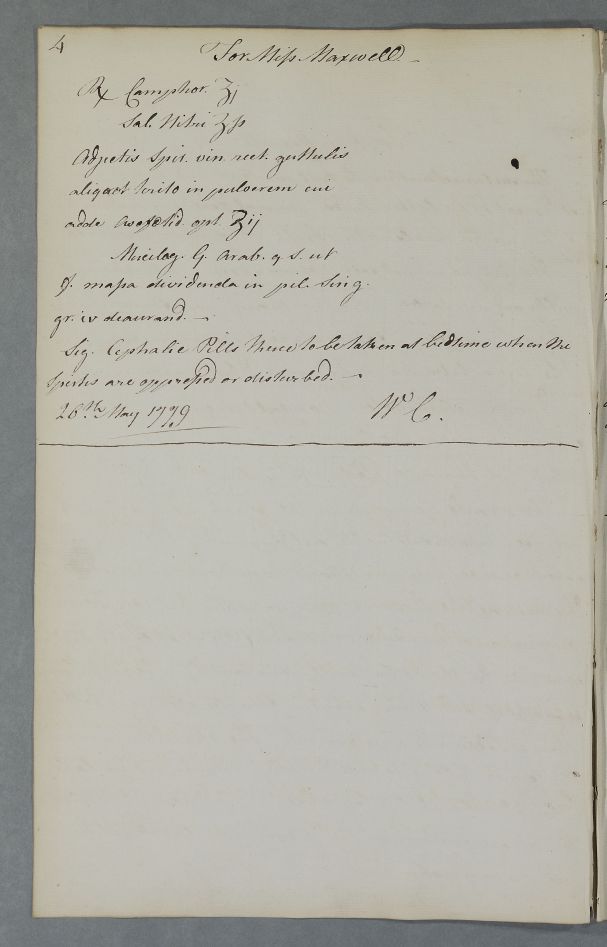 4
For Miss Maxwell. —
℞ Camphor. ʒj
Sal. Nitri ʒſs
Adjectis Spir. vin. rect. guttulis
aliquot terito in pulverem cui
adde Assafœtid. opt. ʒij
Mucilag. G. Arab. q. s. ut
f. massa dividenda in pil. sing.
gr. iv deaurand. —
Sig. Cephalic Pills three to be taken at bedtime when the
spirits are oppressed or disturbed. —
26th May 1779
Wm C.